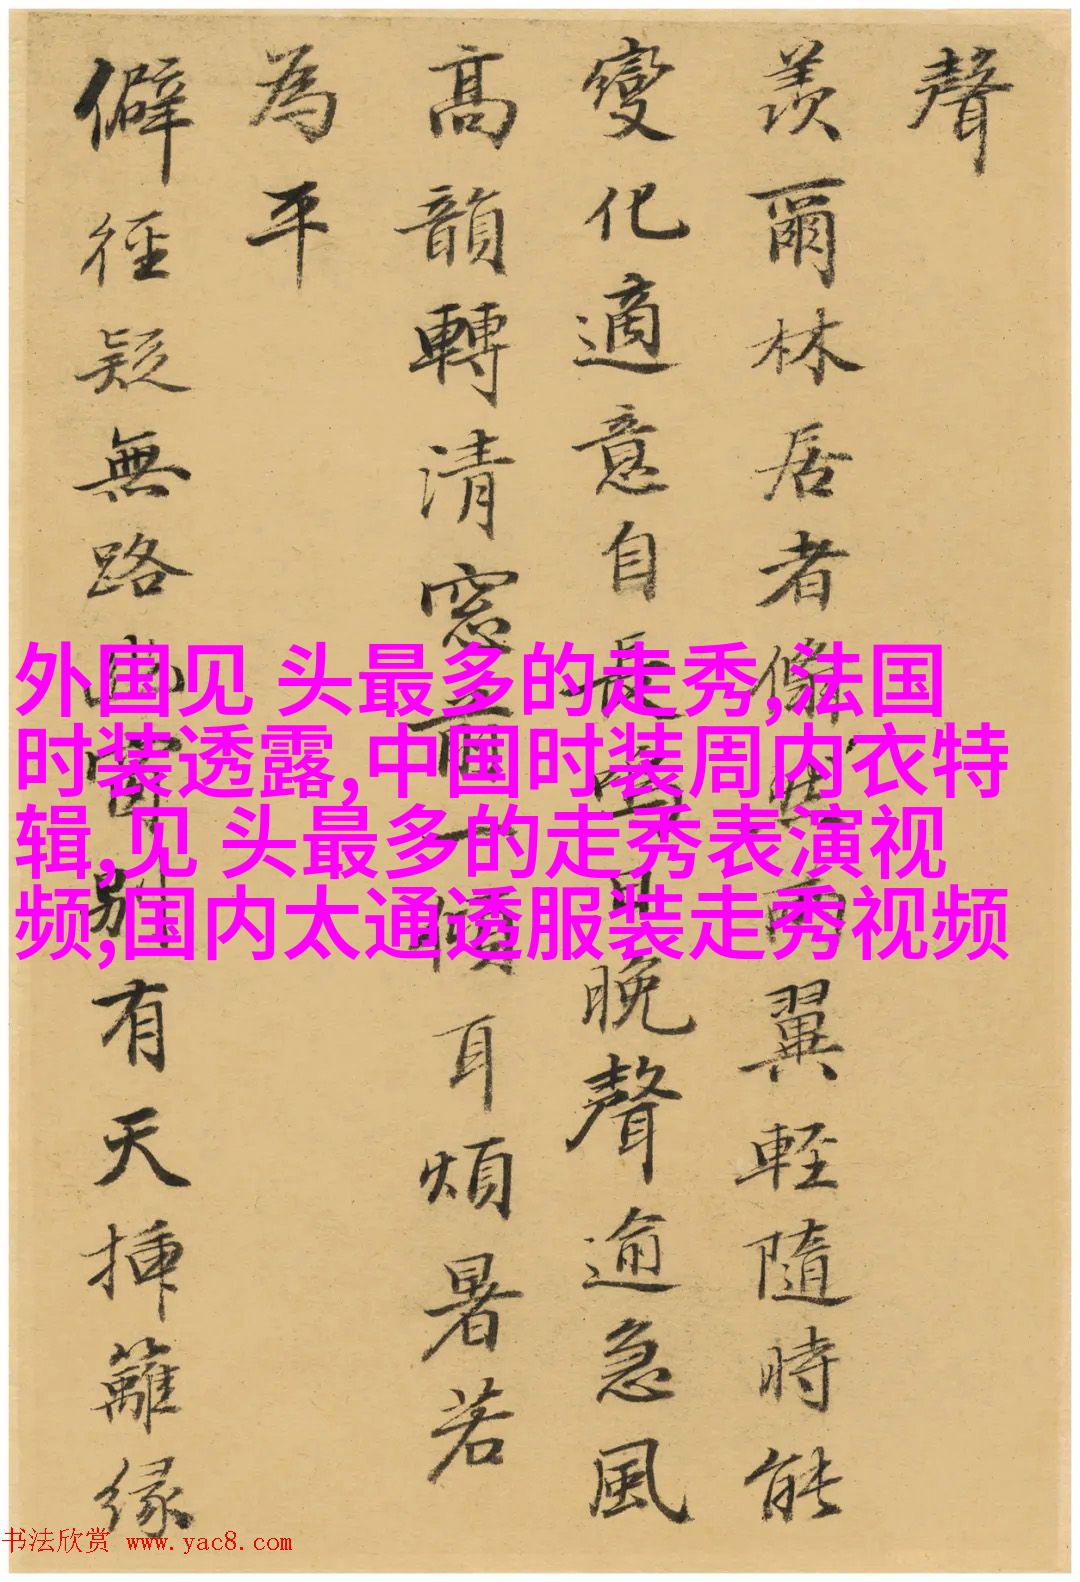 聲
羨爾林居者然兩翼輕隨時能
變化適意自長鳴日晚聲逾急風
高韻轉清窓前一傾耳煩暑若
為平
僻徑疑無路山窗別有天挿籬緣
外国见 头最多的走秀,法国
时装透露,中国时装周内衣特
辑,见 头最多的走秀表演视
频,国内太通透服装走秀视频
书法欣赏 www.yac8.com